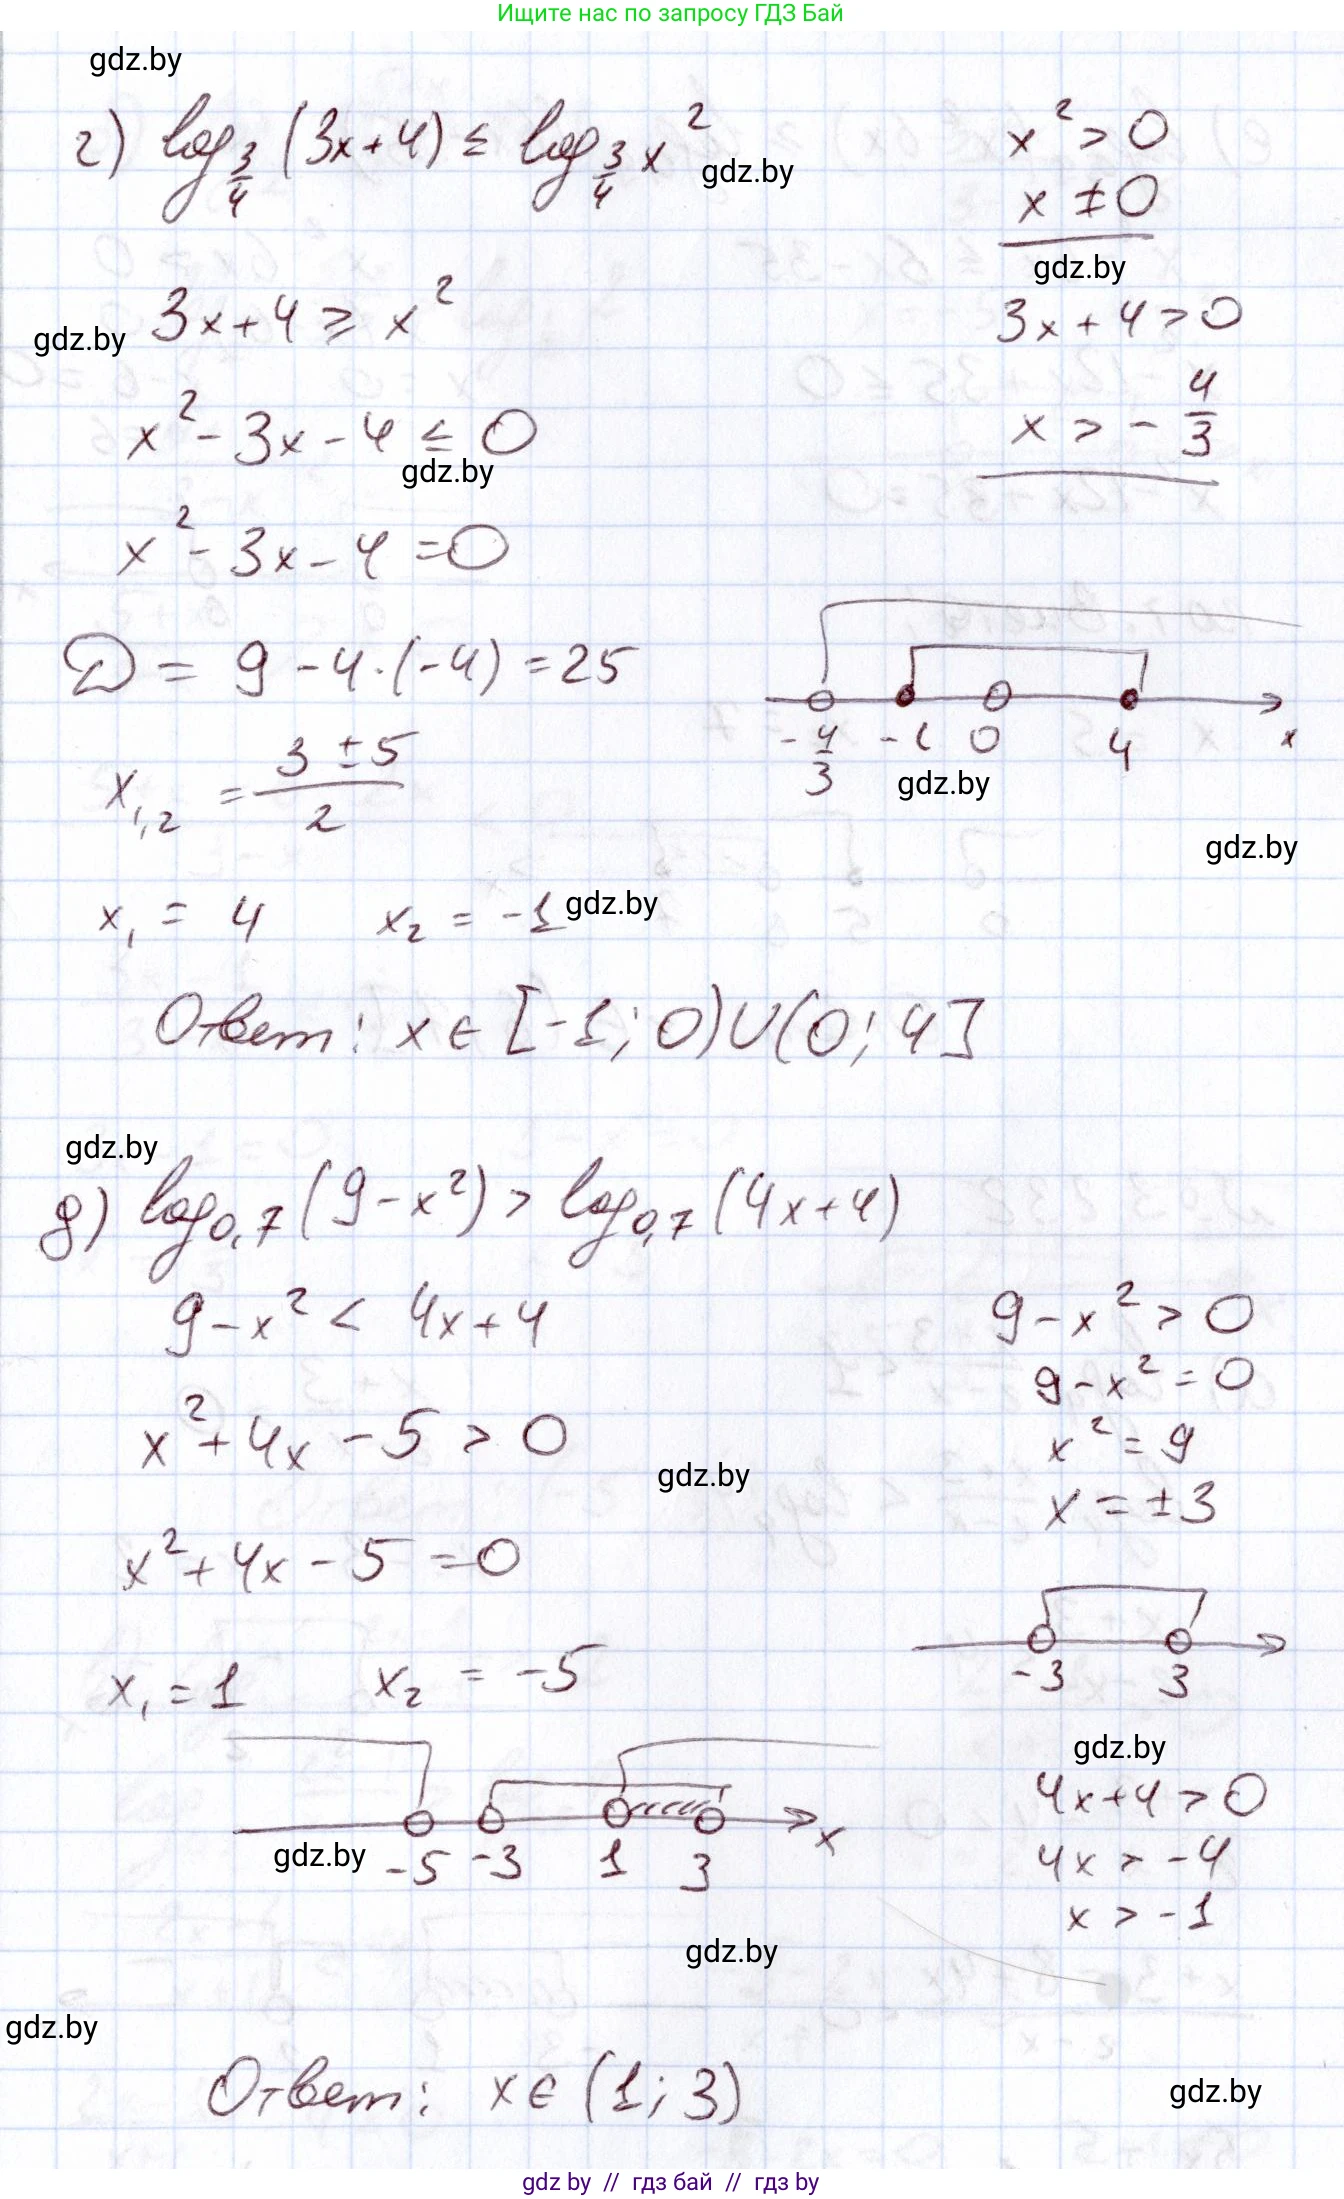 Ищите нас по запросу ГДЗ Бай
gdz.by
г) log_{3/4} (3x+4) ≤ log_{3/4} x²
gdz.by
x² > 0
x ≠ 0
gdz.by
3x+4 ≥ x²
gdz.by
3x+4 > 0
x² - 3x - 4 ≤ 0
gdz.by
x > - 4/3
x² - 3x - 4 = 0
D = 9 - 4·(-4) = 25
-4/3 -1 0 4 x
gdz.by
x_{1,2} = (3 ± 5)/2
gdz.by
x₁ = 4 x₂ = -1
gdz.by
Ответ: x ∈ [-1; 0) ∪ (0; 4]
gdz.by
д) log_{0,7} (9-x²) > log_{0,7} (4x+4)
9-x² < 4x+4
9-x² > 0
9-x² = 0
x²+4x-5 > 0
x² = 9
gdz.by
x = ±3
x²+4x-5 = 0
-3 3
x₁ = 1 x₂ = -5
gdz.by
4x+4 > 0
-5 -3 1 3 x
gdz.by
4x > -4
x > -1
gdz.by
gdz.by
Ответ: x ∈ (1; 3)
gdz.by
gdz by // гдз бай // гдз by